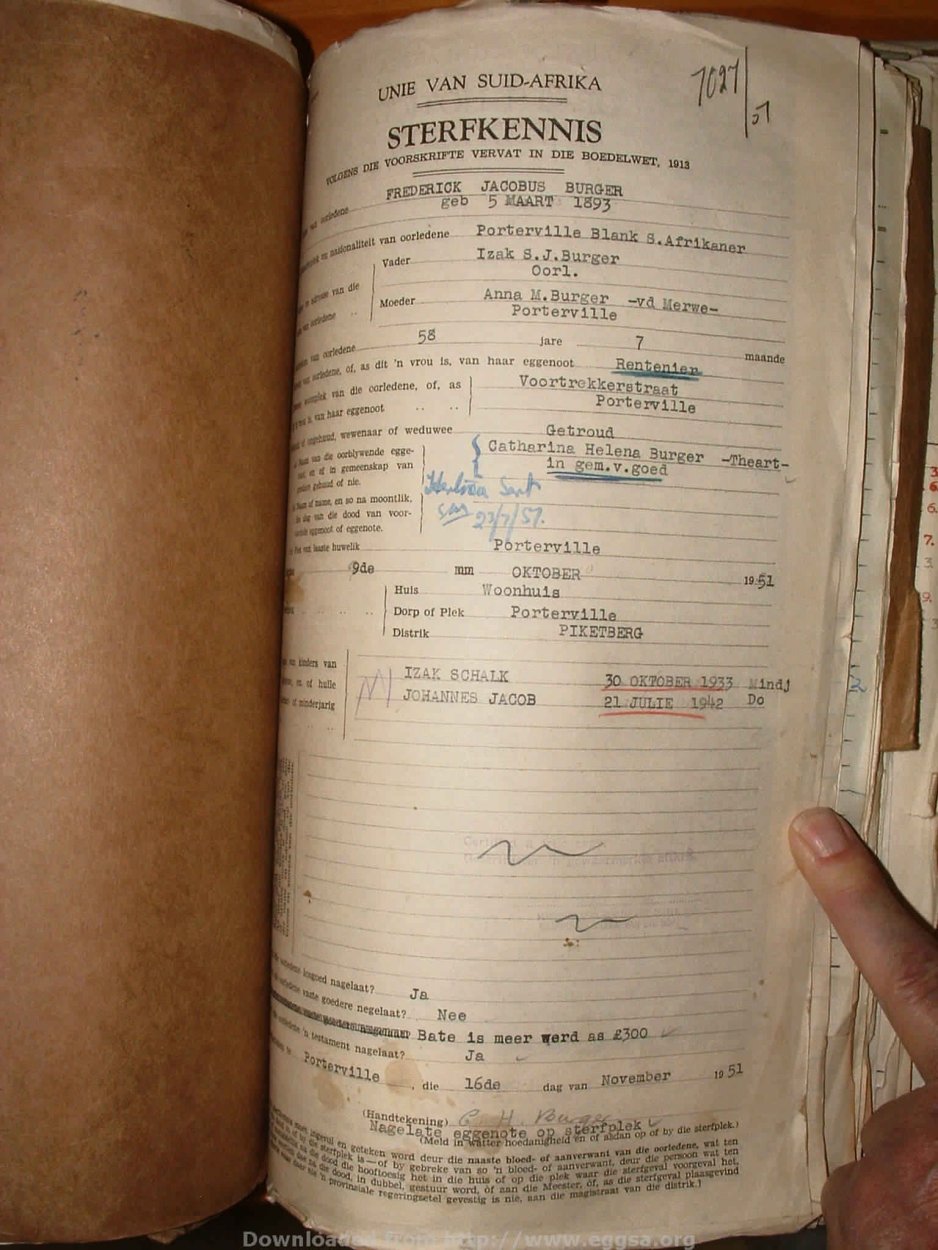 7027/51
UNIE VAN SUID-AFRIKA
STERFKENNIS
VOLGENS DIE VOORSKRIFTE VERVAT IN DIE BOEDELWET, 1913
FREDERICK JACOBUS BURGER
van oorledene geb 5 MAART 1893
en nasionaliteit van oorledene Porterville Blank S.Afrikaner
Vader Izak S.J.Burger
Oorl.
van die
Moeder Anna M.Burger -vd Merwe-
oorledene Porterville
van oorledene 58 jare 7 maande
oorledene, of, as dit 'n vrou is, van haar eggenoot Rentenier
van die oorledene, of, as Voortrekkerstraat
is, van haar eggenoot Porterville
ongehuud, wewenaar of weduwee Getroud
van die oorblywende egge- Catharina Helena Burger -Theart-
en of in gemeenskap van in gem.v.goed
gehuud of nie.
of name, en so na moontlik,
dag van die dood van voor- 23/7/57.
eggenoot of eggenote.
van laaste huwelik Porterville
9de mm OKTOBER 1951
Huis Woonhuis
Dorp of Plek Porterville
Distrik PIKETBERG
kinders van
en of hulle IZAK SCHALK 30 OKTOBER 1933 Mindj
of minderjarig JOHANNES JACOB 21 JULIE 1942 Do
2
oorledene losgoed nagelaat? Ja
vaste goedere negelaat? Nee
Bate is meer werd as £300
oorledene 'n testament nagelaat? Ja
Porterville, die 16de dag van November 1951
(Handtekening) C. H. Burger
Nagelate eggenote op sterfplek
(Meld in watter hoedanigheid en of aldan op of by die sterfplek.)
ingevul en geteken word deur die naaste bloed- of aanverwant van die oorledene, wat ten
of by die sterfplek is—of by gebreke van so 'n bloed- of aanverwant, deur die persoon wat ten
die dood die hooftoesig het in die huis of op die plek waar die sterfgeval voorgeval het,
die dood, in dubbel, gestuur word, of aan die Meester, of, as die sterfgeval plaasgevind
'n provinsiale regeringsetel gevestig is nie, aan die magistraat van die distrik.]
3
6
6.
7.
3
9.
3
Downloaded from http://www.eggsa.org